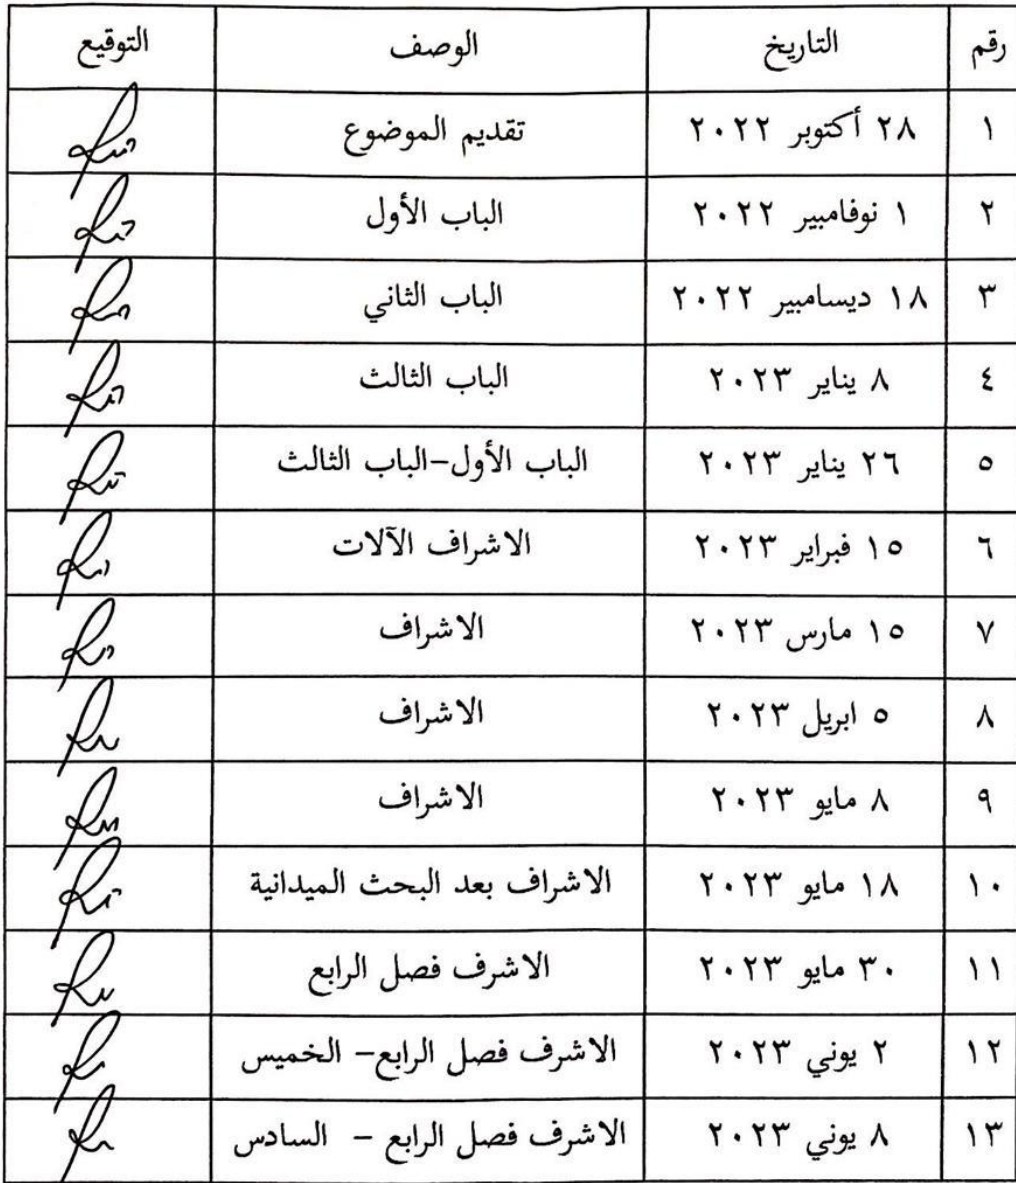 رقم التاريخ الوصف التوقيع
١ ٢٨ أكتوبر ٢٠٢٢ تقديم الموضوع
٢ ١ نوفامبير ٢٠٢٢ الباب الأول
٣ ١٨ ديسامبير ٢٠٢٢ الباب الثاني
٤ ٨ يناير ٢٠٢٣ الباب الثالث
٥ ٢٦ يناير ٢٠٢٣ الباب الأول–الباب الثالث
٦ ١٥ فبراير ٢٠٢٣ الاشراف الآلات
٧ ١٥ مارس ٢٠٢٣ الاشراف
٨ ٥ ابريل ٢٠٢٣ الاشراف
٩ ٨ مايو ٢٠٢٣ الاشراف
١٠ ١٨ مايو ٢٠٢٣ الاشراف بعد البحث الميدانية
١١ ٣٠ مايو ٢٠٢٣ الاشرف فصل الرابع
١٢ ٢ يوني ٢٠٢٣ الاشرف فصل الرابع– الخميس
١٣ ٨ يوني ٢٠٢٣ الاشرف فصل الرابع – السادس